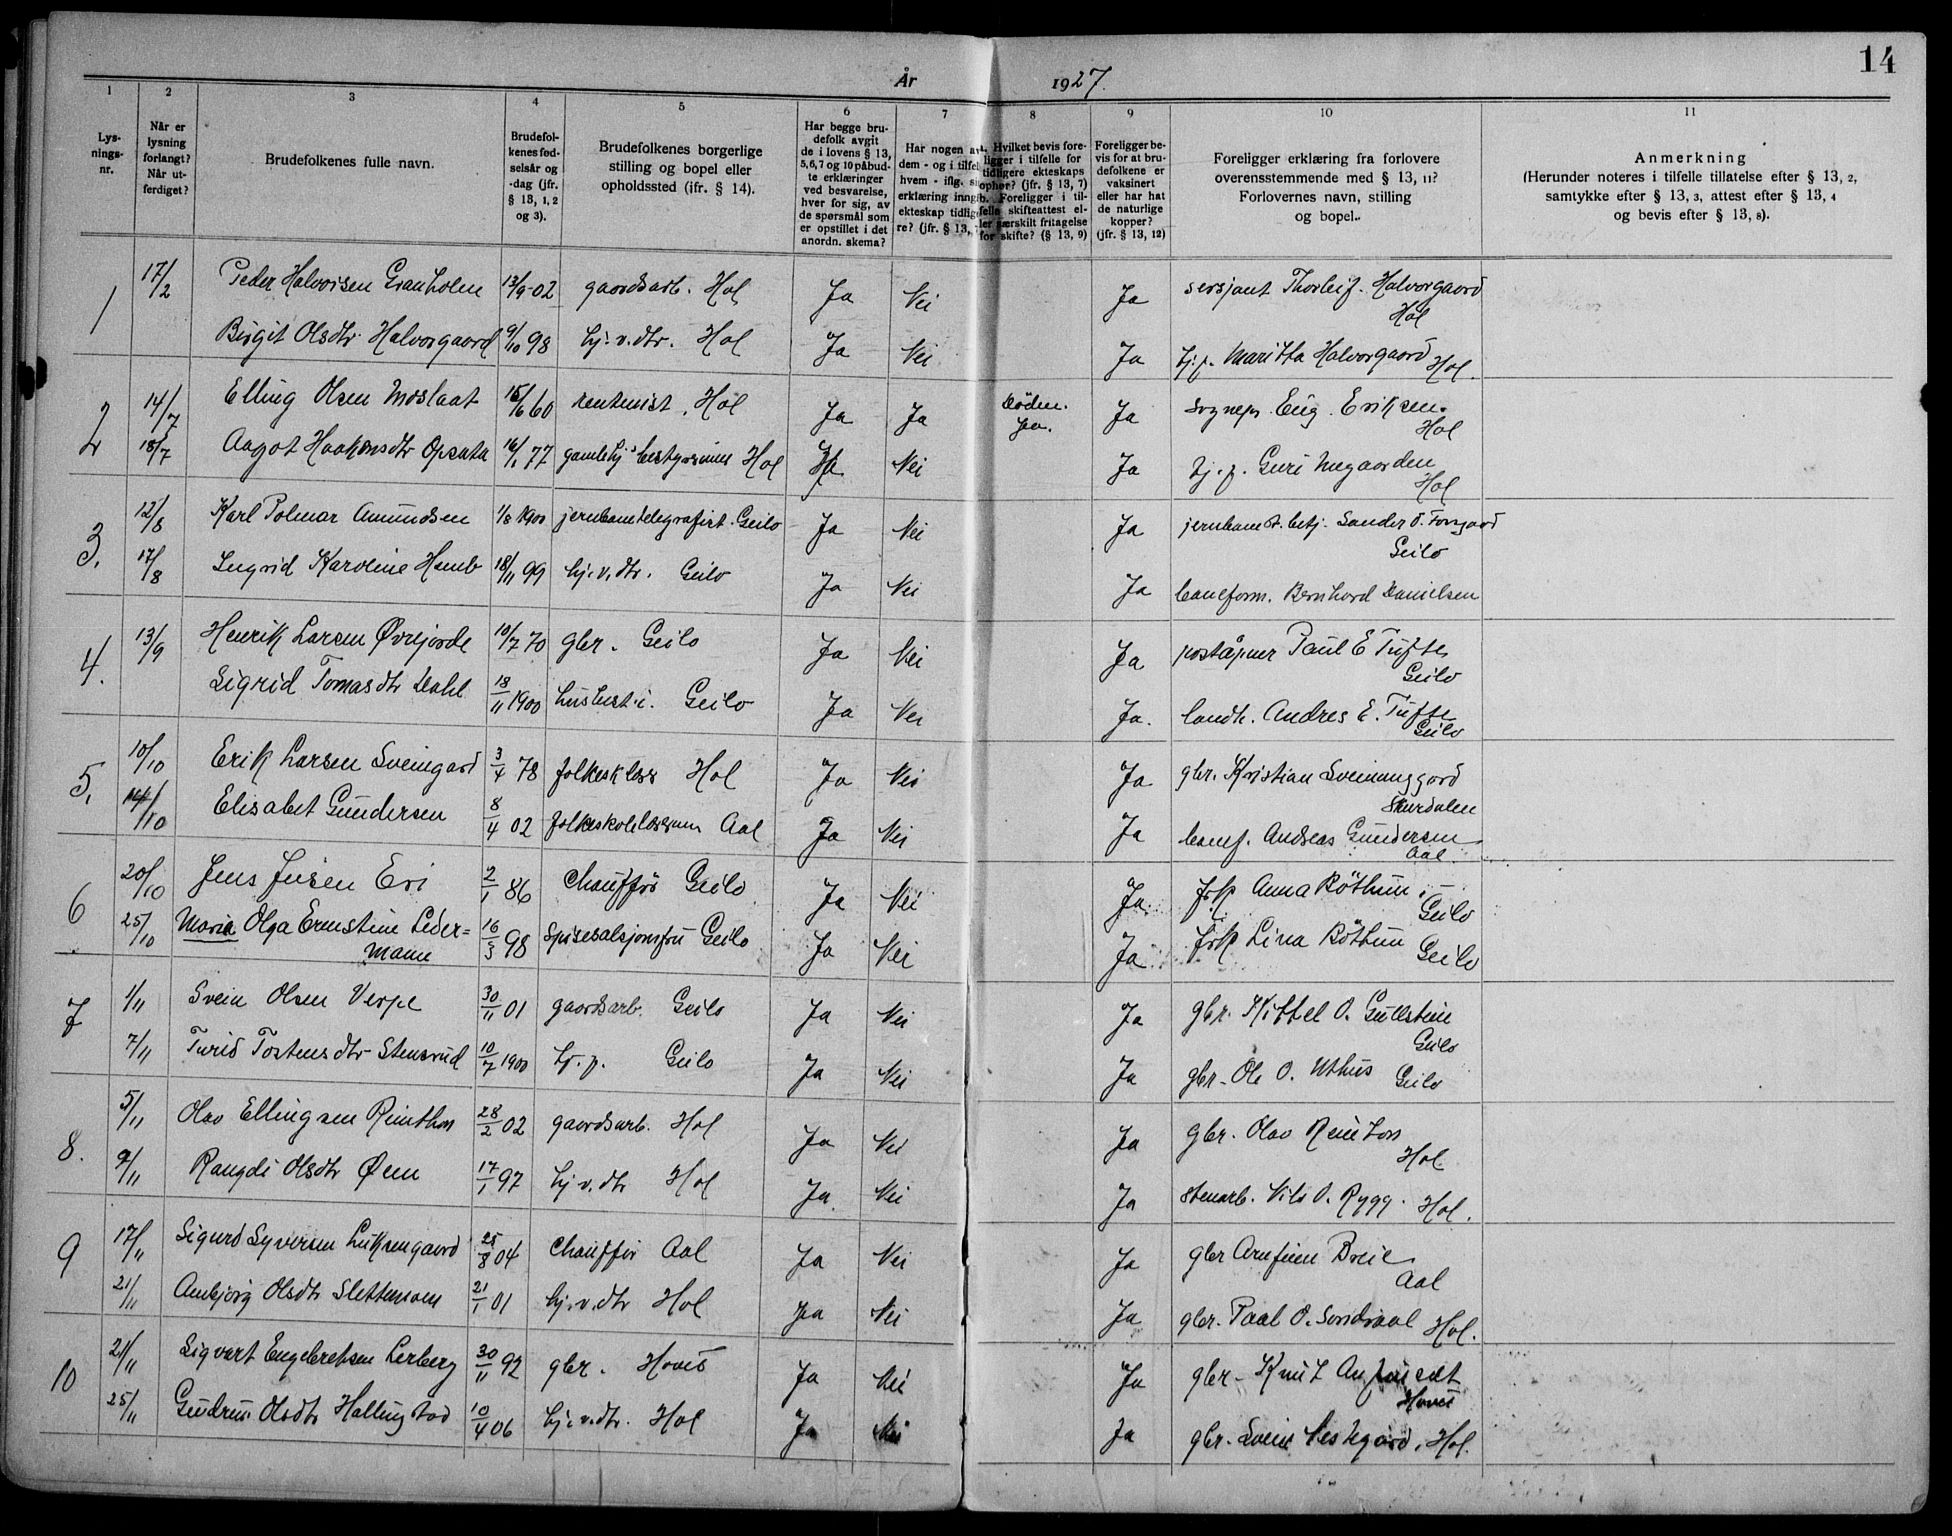 14
År 1927.
1 2 3 4 5 6 7 8 9 10 11
Lys-
nings-
nr.
Når er
lysning
forlangt?
Når ut-
ferdiget?
Brudefolkenes fulle navn.
Brudefol-
kenes fød-
selsår og
-dag (jfr.
§ 13, 1, 2
og 3).
Brudefolkenes borgerlige
stilling og bopel eller
opholdssted (ifr. § 14).
Har begge bru-
defolk avgit
de i lovens § 13,
5, 6, 7 og 10 påbud-
te erklæringer
ved besvarelse,
hver for sig, av
de spørsmål som
er opstillet i det
anordn. skema?
Har nogen av
dem - og i tilfel
hvem - iflg.
erklæring inngå
ekteskap tidlige
re? (jfr. § 13,
Hvilket bevis fore-
ligger i tilfelle for
tidligere ekteskaps
ophør? (jfr. § 13, 7)
b. Foreligger i til-
felle skifteattest el-
ler særskilt fritagelse
for skifte? (§ 13, 9)
Foreligger be-
vis for at bru-
defolkene er
vaksinert
eller har hat
de naturlige
kopper?
(jfr. § 13, 12)
Foreligger erklæring fra forlovere
overensstemmende med § 13, 11?
Forlovernes navn, stilling
og bopel.
Anmerkning
(Herunder noteres i tilfelle tillatelse efter § 13, 2,
samtykke efter § 13, 3, attest efter § 13, 4
og bevis efter § 13, 8).
1 17/2 Peder Halvorsen Granholm 13/9-02 gaardsarb. Hol Ja Nei Ja sersjant Thorleif Halvorgaard
Hol
Birgit Olsdtr Halvorgaard 9/10 98 hj.v.dtr. Hol Ja Nei Ja hj.p. Maritta Halvorgaard Hol.
2 14/7 Elling Olsen Moslaat 15/6 60 rentenist, Hol Ja Ja Døden. Ja. Ja Sognepr. Eug. Eriksen.
Hol
18/7 Aagot Haakonsdtr Opsata 16/1 77 gamlehj. bestyrerinne Hol Ja Nei Ja hj.p. Guri Negaarden
Hol
3. 12/8 Karl Polmar Amundsen 1/8 1900 jernbanetelegrafist. Geilo Ja Nei Ja jernbanest. betj. Sander O. Forsgaard
Geilo
17/8 Ingrid Karoline Homb 18/11 99 hj.v.dtr. Geilo Ja Nei Ja baneform. Bernhard Danielsen
4. 13/9 Henrik Larsen Øvrejorde 10/7 70 gbr. Geilo Ja Nei Ja poståpner Paul E Tufte,
Geilo
Sigrid Tomasdtr Dahl 18/11 1900 husbest.i. Geilo Ja Nei Ja. landh. Andres E. Tufte
Geilo
5. 10/10 Erik Larsen Sveingard 3/4 78 folkesk lær Hol Ja Nei Ja gbr. Kristian Sveinunggard
Skurdalen
14/10 Elisabet Gundersen 8/4 02 folkeskolelærerinn Aal Ja Nei Ja banef. Andreas Gundersen
Aal
6 20/10 Jens Jensen Eri 2/1 86 Chauffør Geilo Ja Nei Ja. frk Anna Røthun. —
Geilo
25/10 Maria Olga Ernstine Leder=
mann 16/3 98 Spisesalsjomfru Geilo Ja Nei Ja frk Lina Røthun Geilo
7 1/11 Svein Olsen Verpe 30/11 01 gaardsarb. Geilo Ja Nei Ja gbr. Kittel O. Gullstein
Geilo
7/11 Turid Tostensdtr Stensrud 10/7 1900 hj.p. Geilo Ja Nei Ja gbr- Ole O. Uthus Geilo
8. 5/11 Olav Ellingsen Reinthon 28/2 02 gaardsarb. Hol Ja Nei Ja gbr. Olav Reinton
Hol
9/11 Rangdi Olsdtr Øen 17/1 97 hj v.dtr Hol Ja. Nei Ja stenarb. Nils O. Rygg. Hol.
9 17/11 Sigurd Syversen Luksengaard 25/8 04 Chauffør Aal Ja Nei Ja gbr Arnfinn Breie
Aal
21/11 Ambjørg Olsdtr Slettemoen 21/1 01 hj.v.dtr Hol Ja Nei Ja gbr. Paal O. Sundraal Hol.
10 21/11 Sigvart Engebretsen Lerberg 30/11 92 gbr. Hovet Ja Nei Ja gbr- Knut
Hovet
25/11 Gudrun Olsdtr Hallingstad 10/4 06 hj.v.dtr. Hol Ja Nei Ja gbr. Svein Neskgård, Hol.